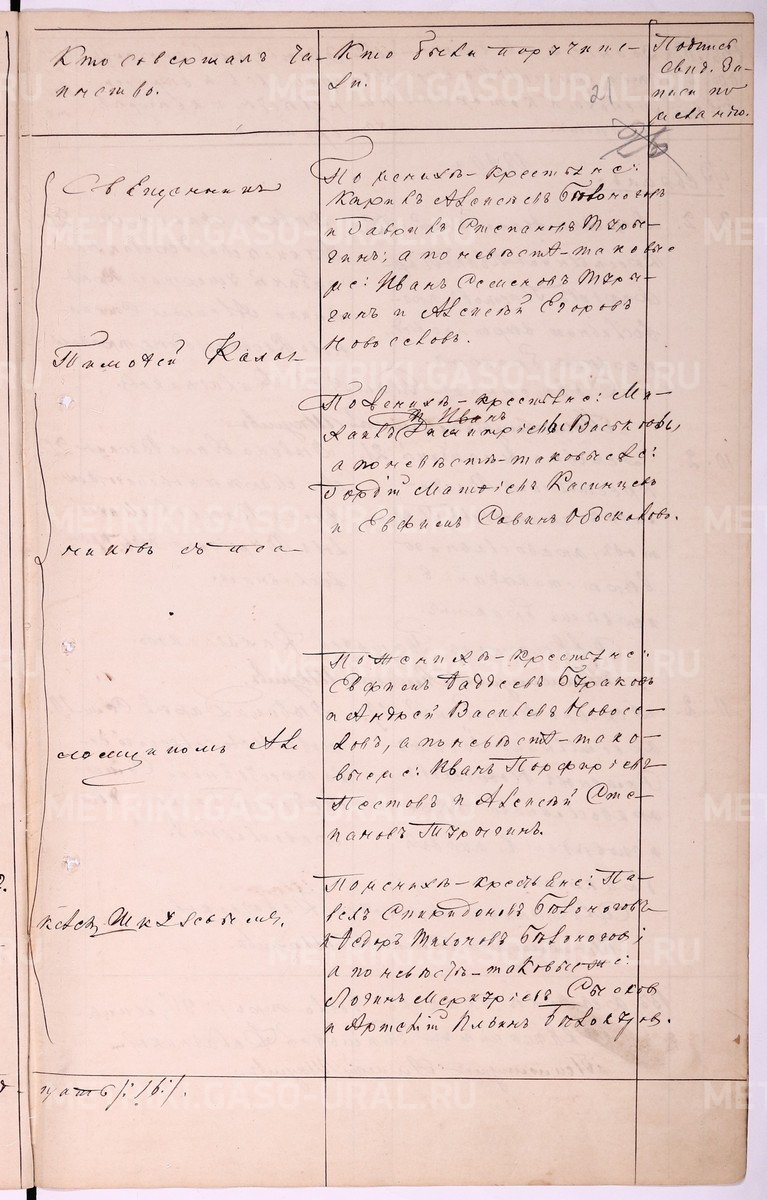 Кто совершалъ та-
инство.
Кто были поручите-
ли.
Подпись
свид. За-
писи по
желанію.
21
26
Священникъ
Тимофей Калаш-
никовъ съ пса-
ломщикомъ Але
ксѣемъ
По женихѣ-крестьяне:
Карпъ Алексѣевъ Бѣлоноговъ
и Гавріилъ Степановъ Тѣры-
гинъ; а по невѣстѣ-таковые
же: Иванъ Семеновъ Тѣры-
гинъ и Алексѣй Егоровъ
Новоселовъ.
По женихѣ-крестьяне: Ми-
Иванъ
хаилъ Димитріевы Васьковы,
а по невѣстѣ-таковые же:
Гордѣй Матвѣевъ Касинцевъ
и Евфимъ Савинъ
По женихѣ-крестьяне:
Евфимъ Фаддеевъ Бураковъ
и Андрей Васильевъ Новосе-
ловъ, а по невѣстѣ-тако-
вые же: Иванъ Порфиріевъ
Постовъ и Алексѣй Сте-
пановъ Тѣрыгинъ.
По женихѣ-крестьяне: Па-
велъ Спиридоновъ Бѣлоноговъ
и Ѳедоръ Тихоновъ Бѣлоноговъ;
а по невѣстѣ-таковые же:
Логинъ Меркуріевъ Сысковъ
и Артемій Ильинъ
METRIKI.GASO-URAL.RU